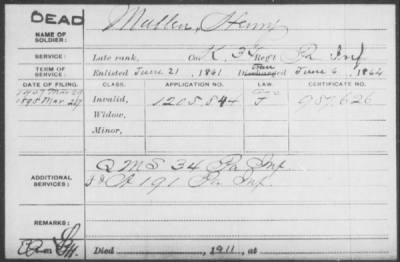 DEAD
NAME OF SOLDIER: Mullen, Henry
SERVICE: Late rank, Co. K, 34 Reg't Pa Inf
TERM OF SERVICE: Enlisted June 21, 1861 Discharged June 6, 1864
DATE OF FILING. CLASS. APPLICATION NO. LAW. CERTIFICATE NO.
Invalid, 1205.844 987.626
Widow,
Minor,
ADDITIONAL SERVICES: QMS 34 Pa Inf
191 Pa Inf.
REMARKS:
Died 1911, at